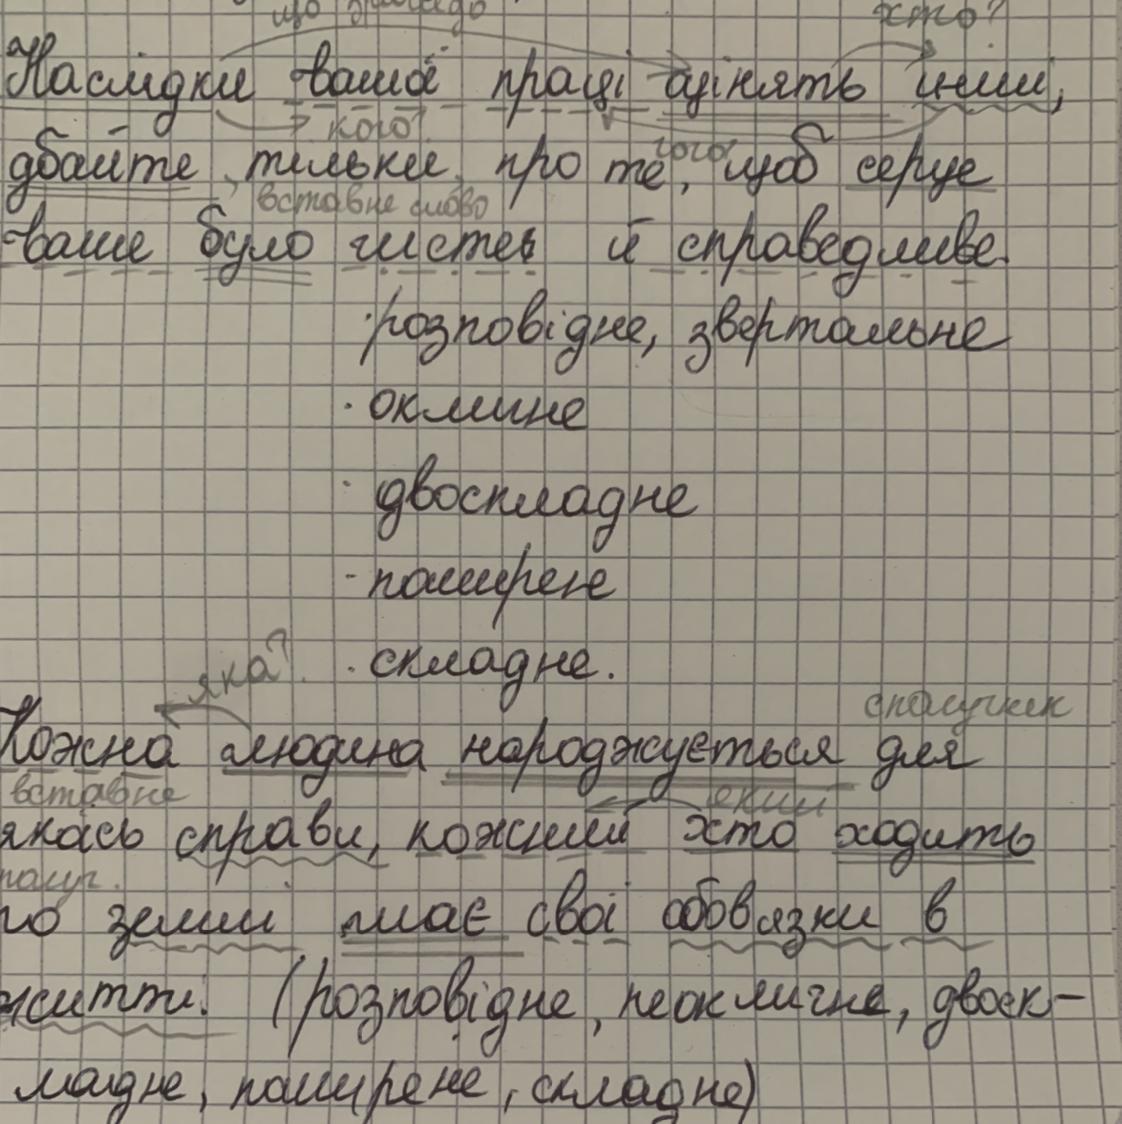 хто?
Наслідки вашої праці оцінять інші,
кого?
дбайте тільки про те, щоб серце
чого
вставне слово
ваше було чисте й справедливе.
· розповідне, звертальне
· окличне
· двоскладне
- поширене
· складне.
яка?
сполучник
Кожна людина народжується для
вставне
який
якась справи, кожний хто ходить
по землі має свої обовязки в
житті. (розповідне, неокличне, двоск-
ладне, поширене, складне)